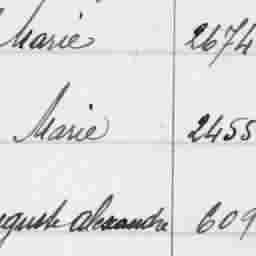 Marie 2674
Marie 2455
auguste alexandre 609